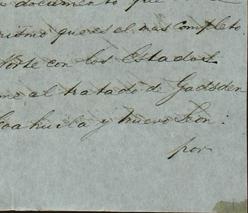 documento que
ritmo que es el mas completo
Norte con los Estados
al tratado de Gadsden
Coahuila y Nuevo Leon:
por